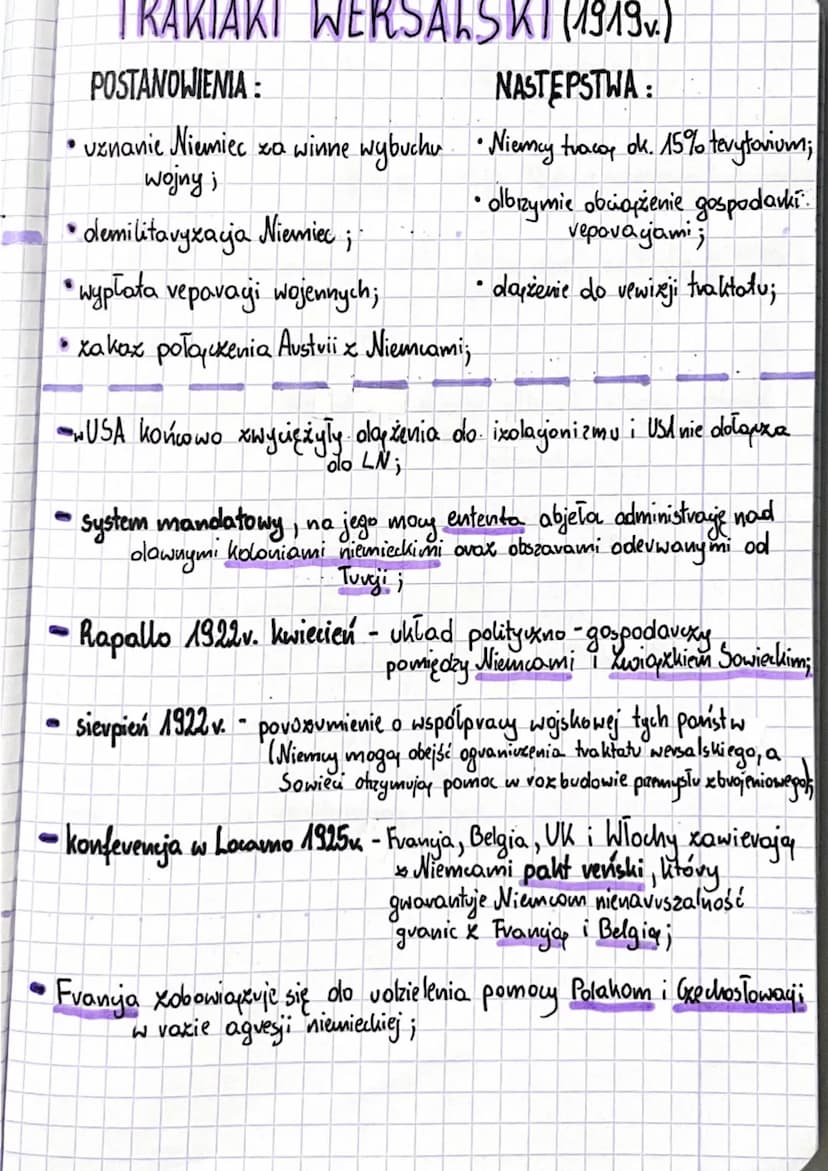 TRAKTAKT WERSALSKI (1919r.)
POSTANOWIENIA :
• uznanie Niemiec za winne wybuchu
wojny ;
• demilitaryzacja Niemiec ;
• wypłata reparacji wojennych;
• zakaz połączenia Austrii z Niemcami;
NASTĘPSTWA :
• Niemcy tracą ok. 15% terytorium;
• olbrzymie obciążenie gospodarki
reparacjami ;
• dążenie do rewizji traktatu;
- w USA końcowo zwyciężyły dążenia do izolacjonizmu i USA nie dołącza
do LN ;
- system mandatowy, na jego mocy ententa objęła administrację nad
dawnymi koloniami niemieckimi oraz obszarami oderwanymi od
Turcji ;
- Rapallo 1922r. kwiecień - układ polityczno-gospodarczy
pomiędzy Niemcami i Związkiem Sowieckim;
- sierpień 1922r. - porozumienie o współpracy wojskowej tych państw
(Niemcy mogą obejść ograniczenia traktatu wersalskiego, a
Sowieci otrzymują pomoc w rozbudowie przemysłu zbrojeniowego);
- konferencja w Locarno 1925r. - Francja, Belgia, UK i Włochy zawierają
z Niemcami pakt reński, który
gwarantuje Niemcom nienaruszalność
granic z Francją i Belgią;
• Francja zobowiązuje się do udzielenia pomocy Polakom i Czechosłowacji
w razie agresji niemieckiej ;